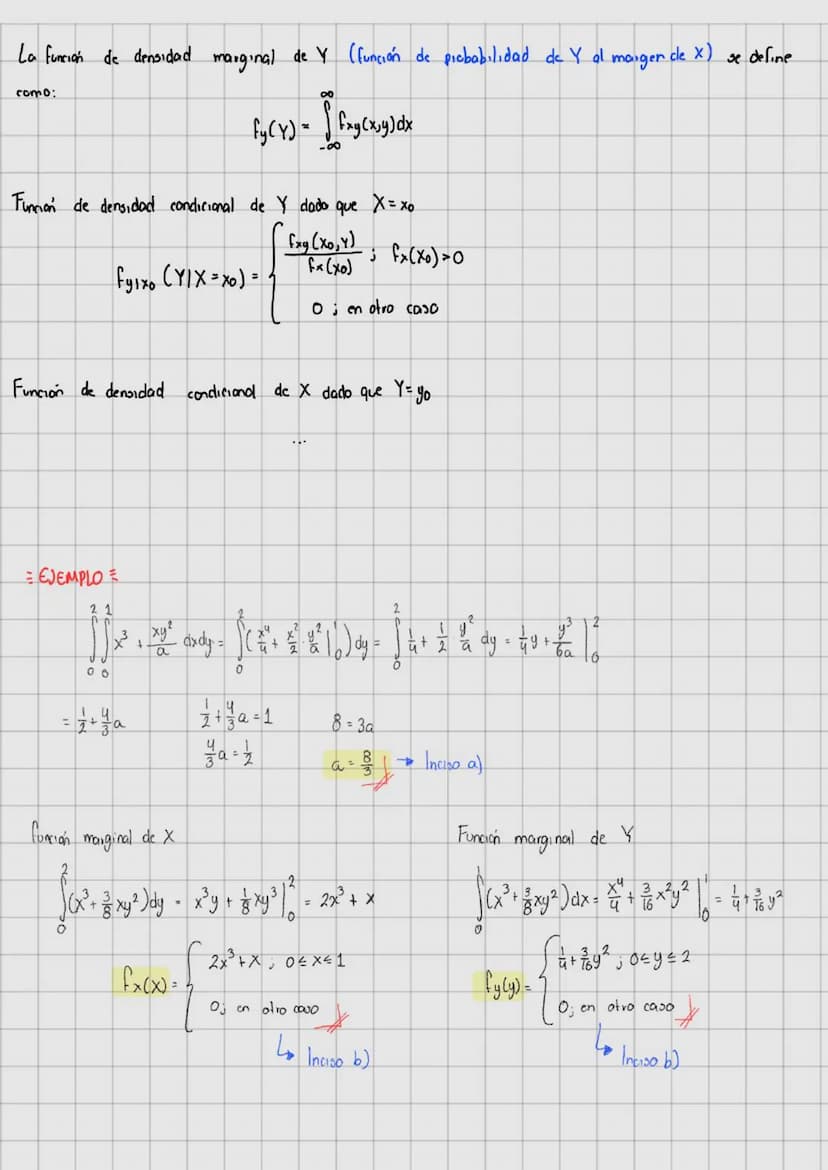 La función de densidad marginal de Y (función de probabilidad de Y al margen de X) se define
como:
fy(Y) = ∫_{-∞}^{∞} fxy(x,y)dx
Función de densidad condicional de Y dado que X = x₀
fy|x₀ (Y|X = x₀) = { fxy(x₀,Y) / fx(x₀) ; fx(x₀)>0
0 ; en otro caso
Función de densidad condicional de X dado que Y = y₀
...
= EJEMPLO =
∫₀² ∫₀¹ x³ + xy²/a dxdy = ∫₀² (x⁴/4 + x²/2 · y²/a |₀¹) dy = ∫₀² 1/4 + 1/2 y²/a dy = 1/4 y + y³/6a |₀²
= 1/2 + 4/3 a
1/2 + 4/3 a = 1
4/3 a = 1/2
8 = 3a
a = 8/3 → Inciso a)
función marginal de X
∫₀² (x³ + 3/8 xy²)dy = x³y + 1/8 xy³ |₀² = 2x³ + x
fx(x) = { 2x³ + x ; 0 ≤ x ≤ 1
0; en otro caso
↳ Inciso b)
Función marginal de Y
∫₀¹ (x³ + 3/8 xy²)dx = x⁴/4 + 3/16 x²y² |₀¹ = 1/4 + 3/16 y²
fy(y) = { 1/4 + 3/16 y² ; 0 ≤ y ≤ 2
0; en otro caso
↳ Inciso b)